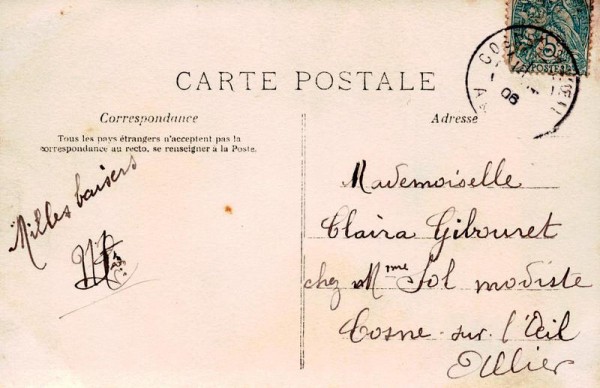 CARTE POSTALE
Correspondance
Tous les pays étrangers n'acceptent pas la
correspondance au recto, se renseigner à la Poste.
Milles baisers
Adresse
POSTES
06
Mademoiselle
Claira Gibouret
chez Mme Sol modiste
Cosne-sur-l'Œil
Allier